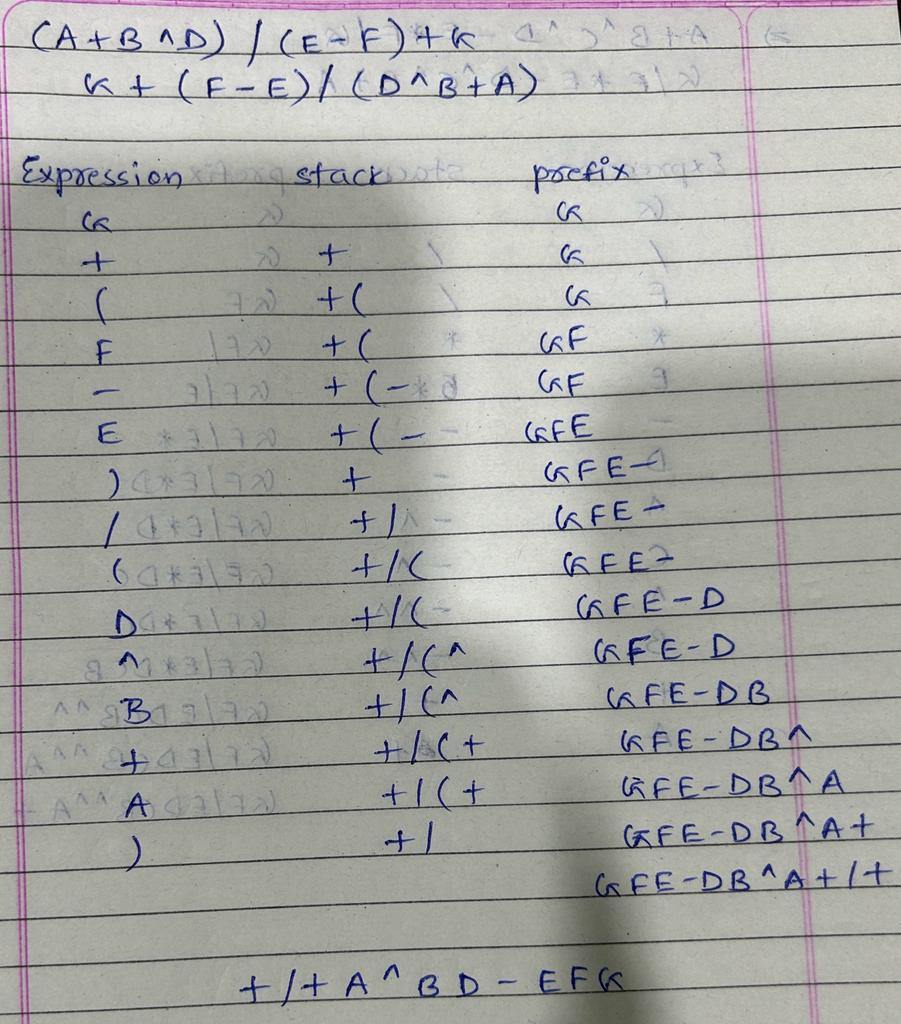 (A+B^D)/(E-F)+G
G+(F-E)/(D^B+A)
Expression stack prefix
G G
+ + G
( +( G
F +( GF
- +(- GF
E +(- GFE
) + GFE-
/ +/ GFE-
( +/( GFE-
D +/( GFE-D
^ +/(^ GFE-D
B +/(^ GFE-DB
+ +/(+ GFE-DB^
A +/(+ GFE-DB^A
) +/ GFE-DB^A+
GFE-DB^A+/+
+/+A^BD-EFG